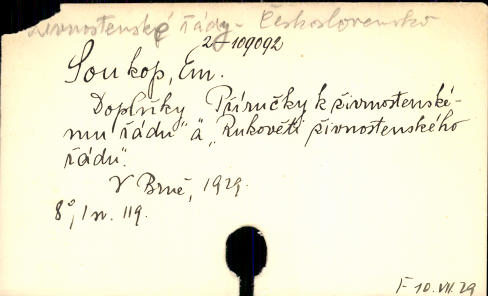 Živnostenské řády - Československo
2-109092
Soukop, Em.
Doplňky „Příručky k živnostenské-
mu řádu" a „Rukověti živnostenského
řádu".
V Brně, 1929.
8°, 1 n. 119.
F 10.VII.29